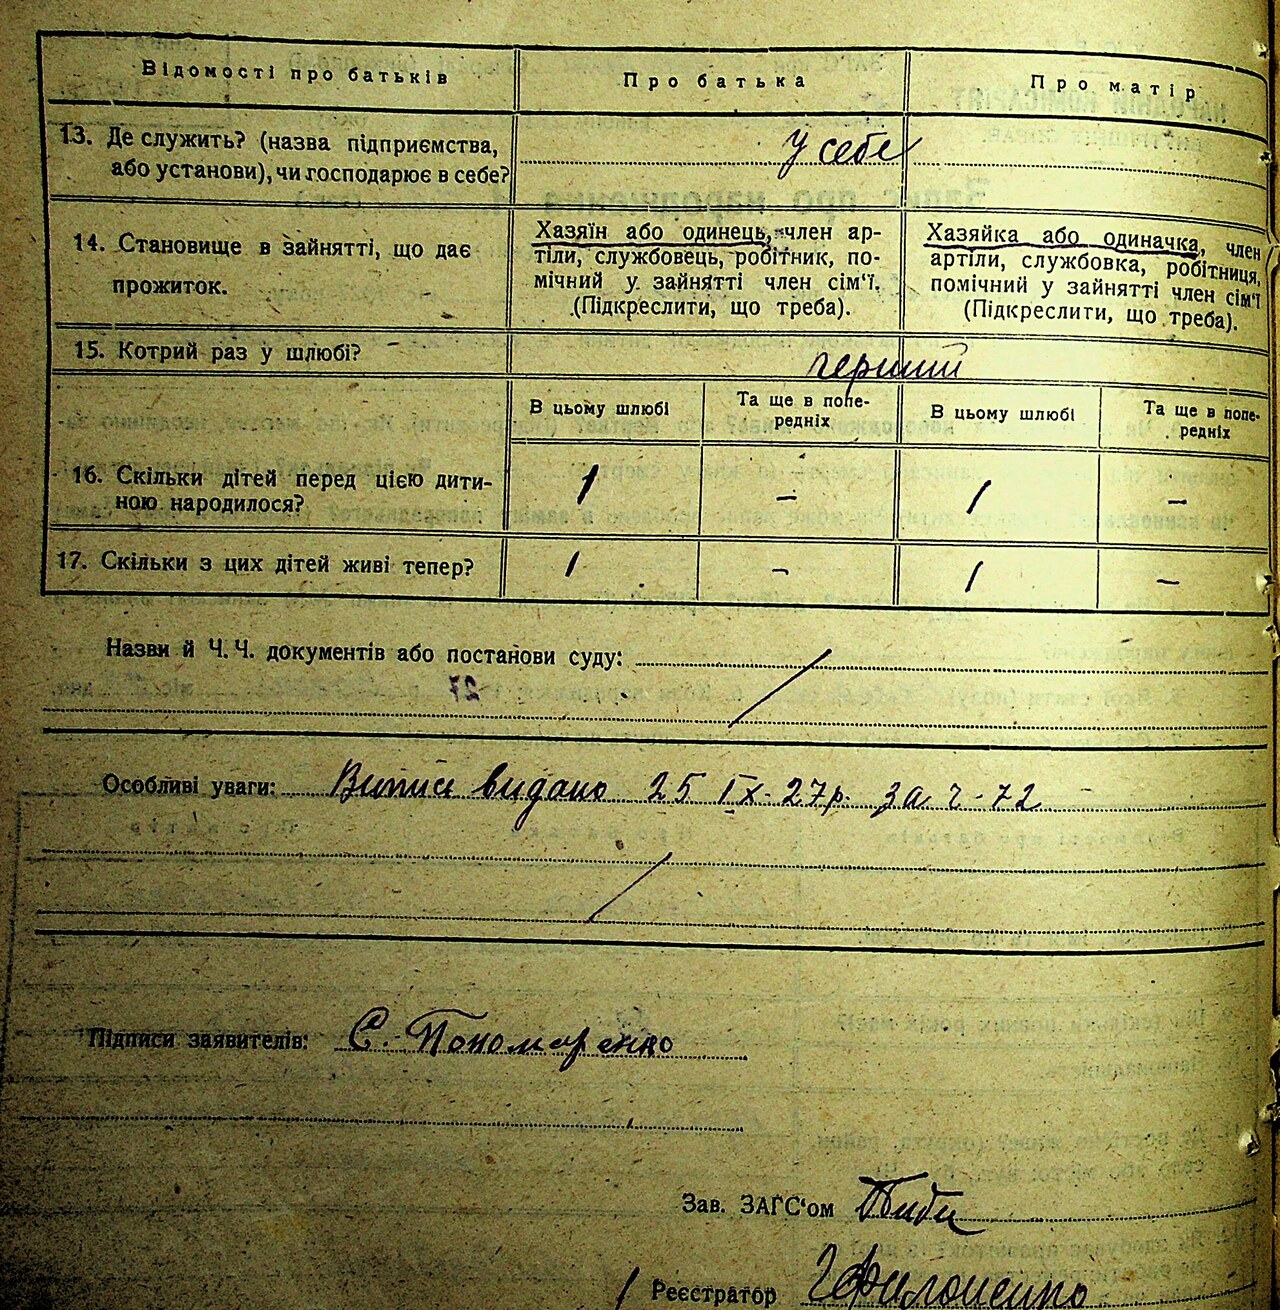 Відомості про батьків	Про батька	Про матір
13. Де служить? (назва підприємства,
або установи), чи господарює в себе?
у себе
14. Становище в зайнятті, що дає
прожиток.
Хазяїн або одинець, член ар-
тіли, службовець, робітник, по-
мічний у зайнятті член сім'ї.
(Підкреслити, що треба).
Хазяйка або одиначка, член
артіли, службовка, робітниця,
помічний у зайнятті член сім'ї
(Підкреслити, що треба).
15. Котрий раз у шлюбі?	перший
В цьому шлюбі	Та ще в попе-
редніх	В цьому шлюбі	Та ще в попе-
редніх
16. Скільки дітей перед цією дити-
ною народилося?	1	–	1	–
17. Скільки з цих дітей живі тепер?	1	–	1	–
Назви й Ч. Ч. документів або постанови суду:
Особливі уваги: Випис видано 25 IX-27р. за ч-72
Підписи заявителів: Є. Пономаренко
Зав. ЗАГС'ом
Реєстратор Г Филоненко